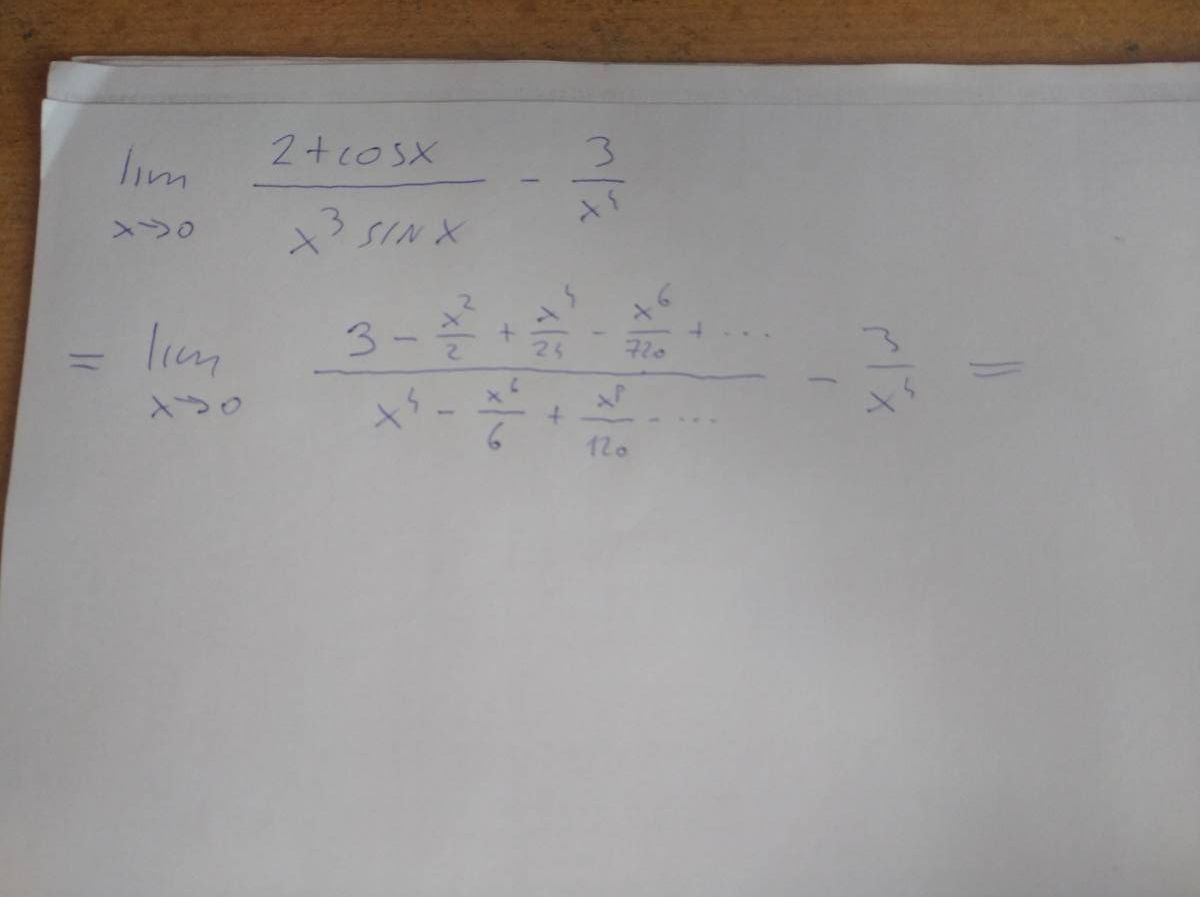 lim x→0 (2+cosx)/(x³ sin x) - 3/x⁴
= lim x→0 (3 - x²/2 + x⁴/24 - x⁶/720 + ...)/(x⁴ - x⁶/6 + x⁸/120 - ...) - 3/x⁴ =